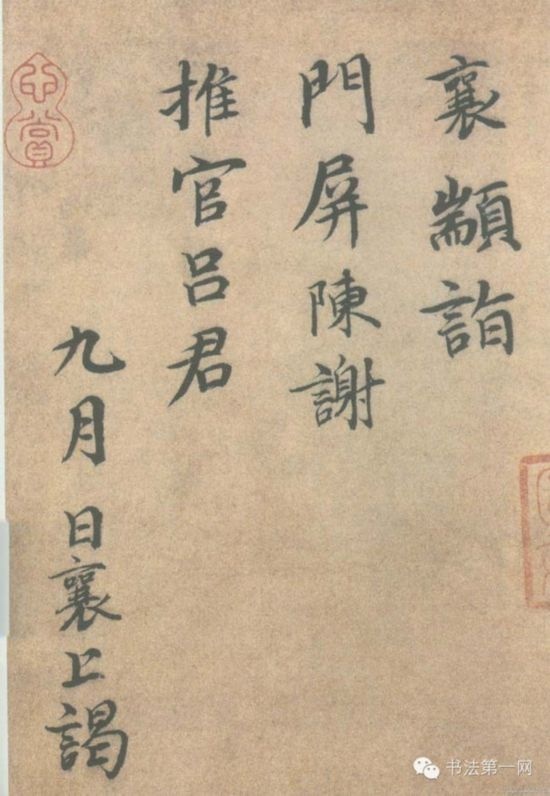 襄顓詣
門屏陳謝
推官呂君
九月 日襄上謁
心賞
书法第一网